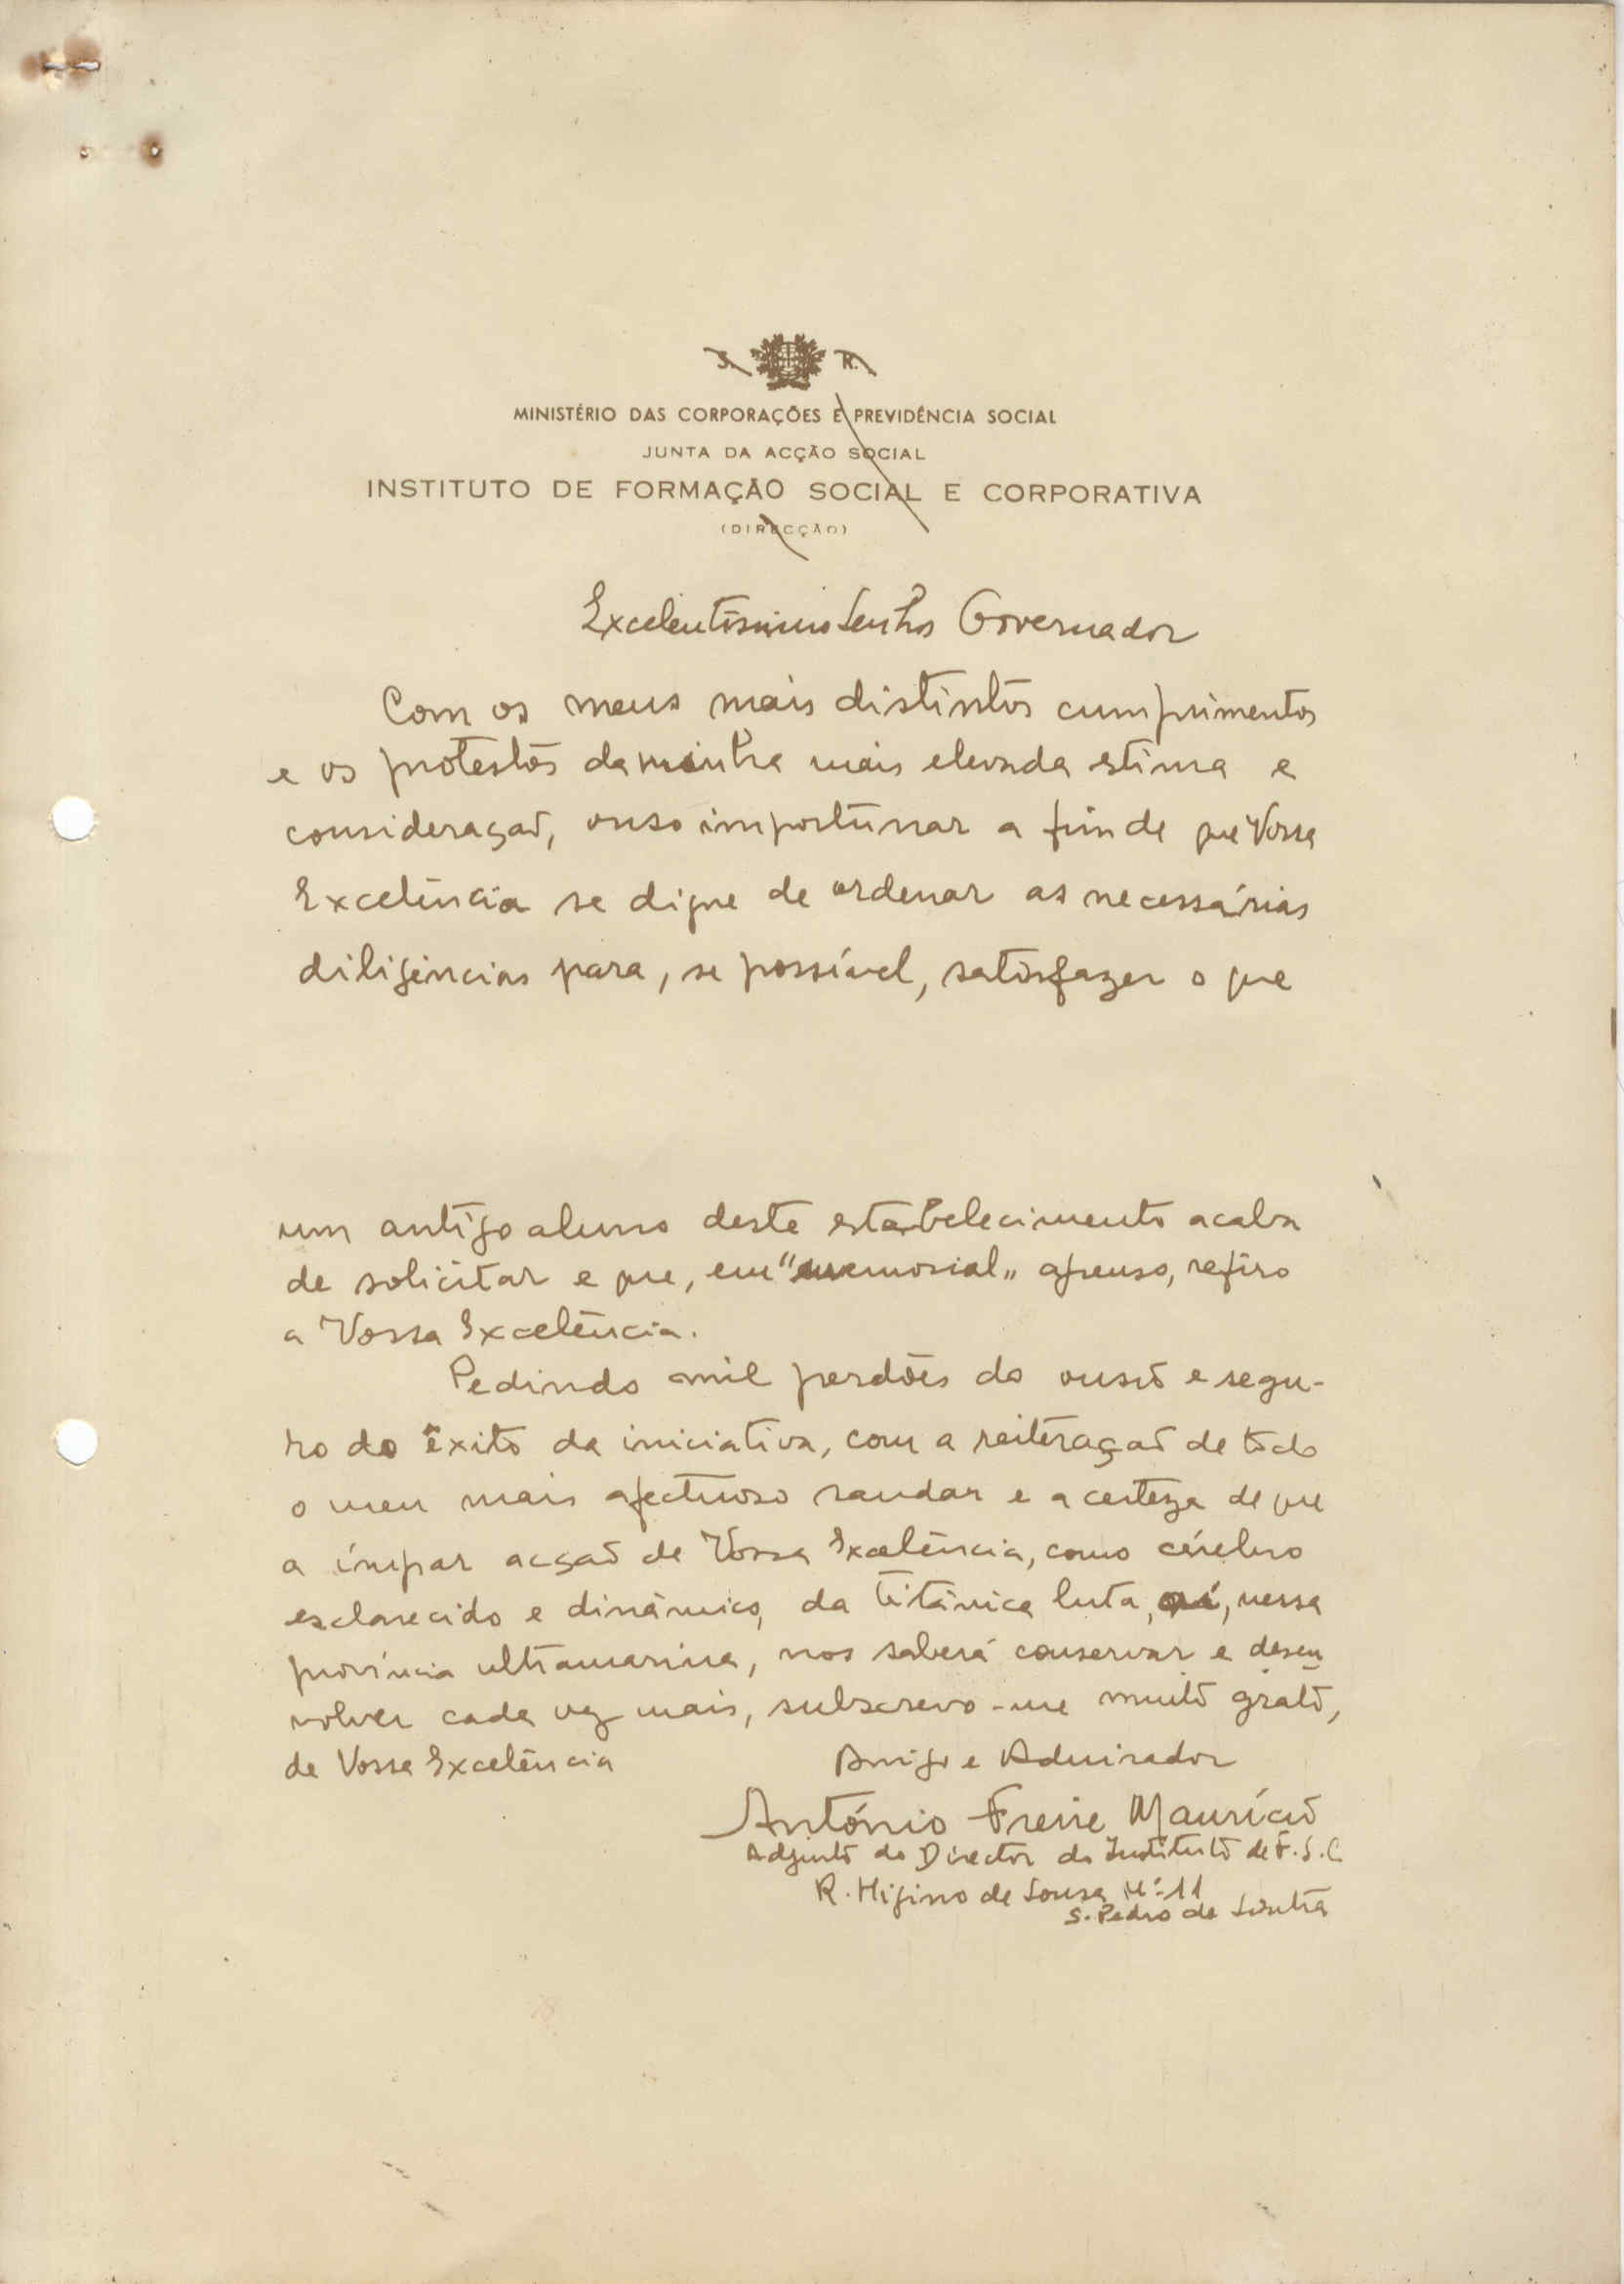 S. R.
MINISTÉRIO DAS CORPORAÇÕES E PREVIDÊNCIA SOCIAL
JUNTA DA ACÇÃO SOCIAL
INSTITUTO DE FORMAÇÃO SOCIAL E CORPORATIVA
(DIRECÇÃO)
Excelentíssimo Senhor Governador
Com os meus mais distintos cumprimentos
e os protestos da minha mais elevada estima e
consideração, ouso importunar a fim de que Vossa
Excelência se digne de ordenar as necessárias
diligências para, se possível, satisfazer o que
um antigo aluno deste estabelecimento acaba
de solicitar e que, em "memorial" apenso, refiro
a Vossa Excelência.
Pedindo mil perdões do ousio e segu-
ro do êxito da iniciativa, com a reiteração de todo
o meu mais afectuoso saudar e a certeza de que
a ímpar acção de Vossa Excelência, como cérebro
esclarecido e dinâmico, da titânica luta, aí, nessa
província ultramarina, nos saberá conservar e desen
volver cada vez mais, subscrevo-me muito grato,
de Vossa Excelência Amigo e Admirador
António Freire Maurício
Adjunto do Director do Instituto de F. S. C.
R. Higino de Sousa Nº 11
S. Pedro de Sintra